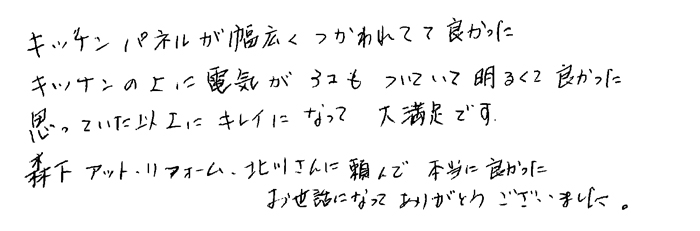 キッチンパネルが幅広くつかわれてて良かった
キッチンの上に電気が3コもついていて明るくて良かった
思っていた以上にキレイになって 大満足です.
森下 アット・リフォーム・北川さんに頼んで 本当に良かった
お世話になってありがとうございました。